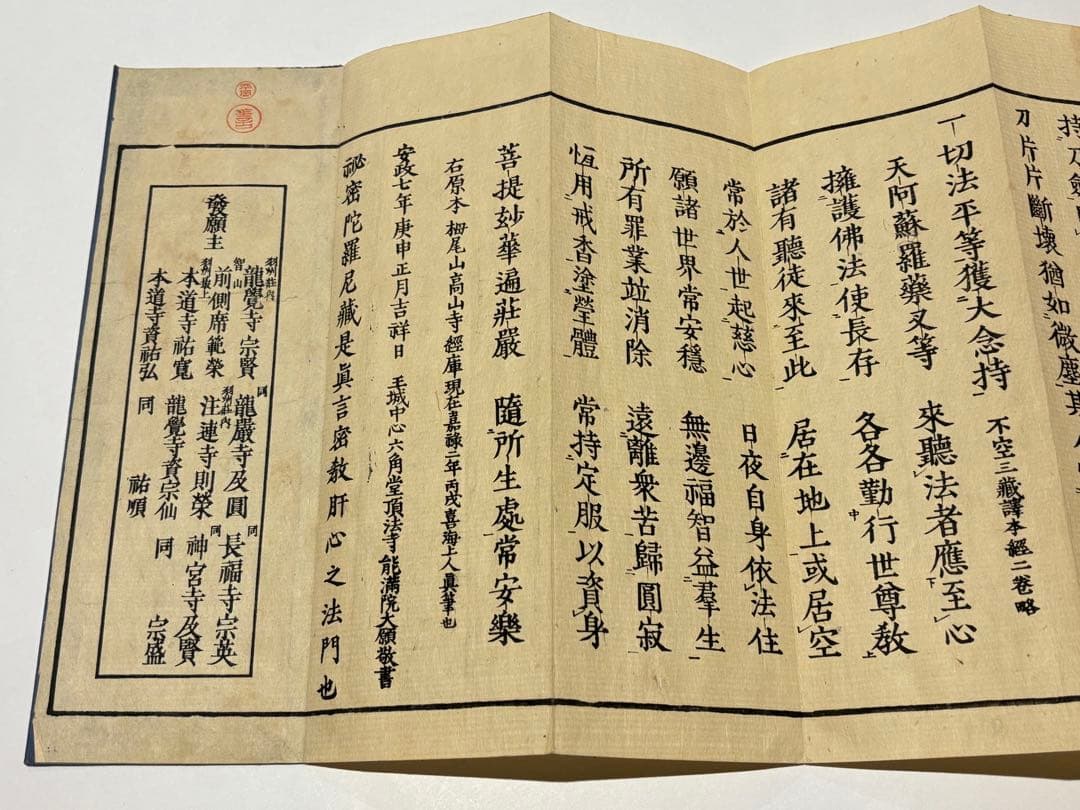 刀片片斷壞猶如微塵其
不空三藏譯本經二卷略
一切法平等獲大念持　來聽法者應至心
天阿蘇羅藥叉等　各各勤行世尊教
擁護佛法使長存
諸有聽徒來至此　居在地上或居空
常於人世起慈心　日夜自身依法住
願諸世界常安穩　無邊福智益羣生
所有罪業竝消除　遠離衆苦歸圓寂
恆用戒香塗瑩體　常持定服以資身
菩提玅華遍莊嚴　隨所生處常安樂
右原本栂尾山高山寺經庫現在嘉祿二年丙戌喜海上人眞筆也
安政七年庚申正月吉祥日　王城中心六角堂頂法寺能滿院大願敬書
祕密陀羅尼藏是眞言密教肝心之法門也
發願主
羽州莊内
龍覺寺宗賢　同龍嚴寺及圓　同長福寺宗英
智山
前側席範榮　羽州莊内注連寺則榮　同神宮寺及賢
羽州最上
本道寺祐寬　龍覺寺資宗仙　同　宗盛
本道寺資祐弘　同　祐順